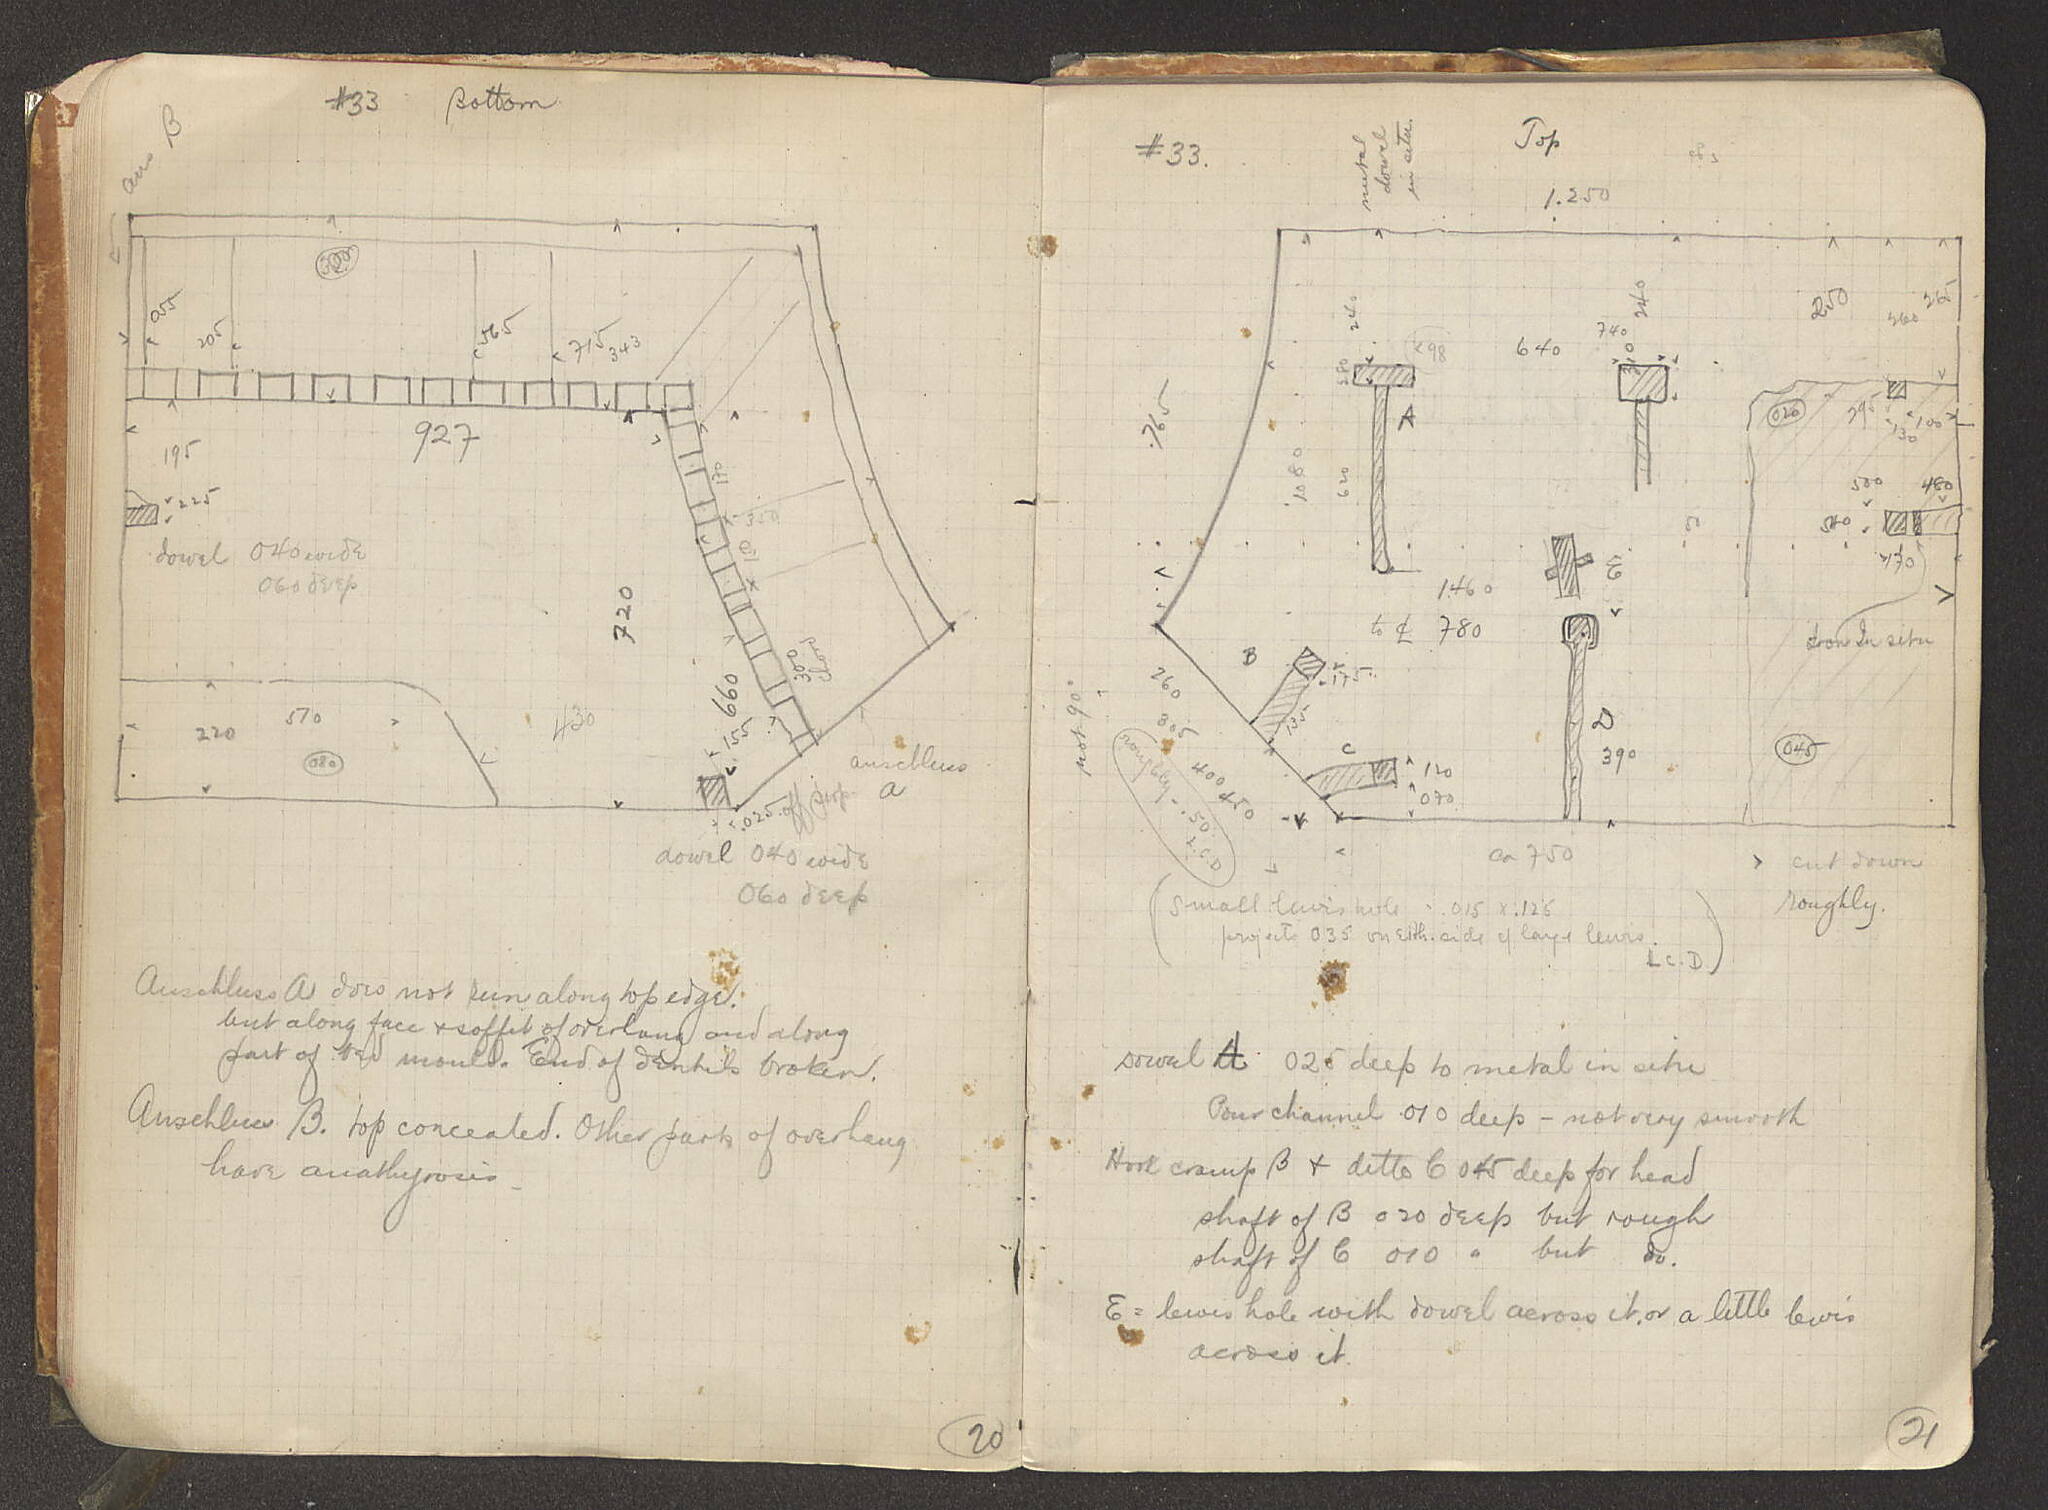 #33 Bottom
ans B
300
055
205
565
715
343
927
195
225
dowel 040 wide
060 deep
170
350
720
300
chord
660
155
570
220
080
430
anschluss
A
.025 off
dowel 040 wide
060 deep
Anschluss A does not run along top edge.
but along face + soffit of overhang and along
part of bed mould. End of dentils broken.
Anschluss B. top concealed. Other parts of overhang
have anathyrosis
20
#33.
metal
dowel
in situ.
Top
1.250
240
240
740
640
250
260
265
A
.765
1080
620
020
295
130
100
500
480
540
470
E
1460
to ₵ 780
iron In situ
B
175
135
not 90°
260
305
400
450
roughly - .50
C
120
070
D
390
045
ca 750
cut down
roughly.
(Small lewis hole - .015 x .125
projects 035 on eith. side of large lewis.
L.C.D)
Dowel A 025 deep to metal in situ
Pour channel .010 deep - not very smooth
Hook cramp B + ditto C 045 deep for head
shaft of B 020 deep but rough
shaft of C 010 " but do.
E = lewis hole with dowel across it, or a little lewis
across it.
21